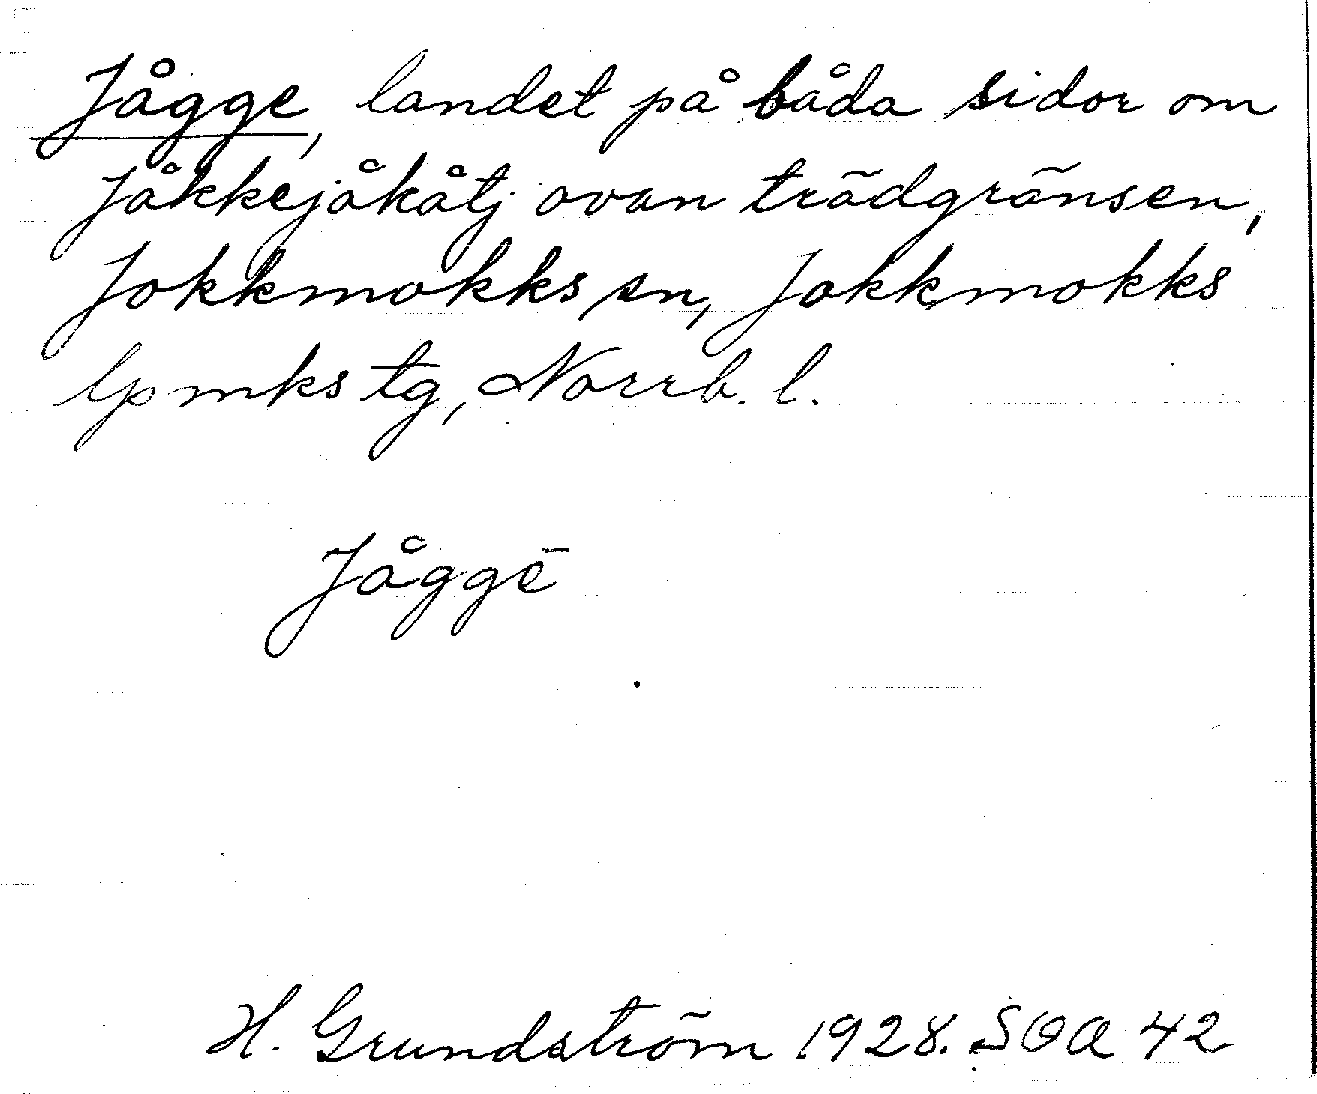 Jågge, landet på båda sidor om
Jåkkejåkåtj ovan trädgränsen,
Jokkmokks sn, Jokkmokks
lpmks tg, Norrb. l.
Jåggē
H. Grundström 1928. SOA 42